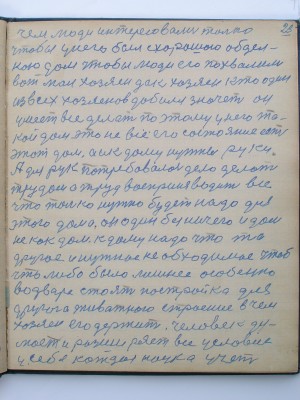 28
чем люди интересовали только
чтобы у него был с хорошою обдел-
кою дом чтобы люди его похвалили
вот мол хозяин дак хозяин кто один
из всех хозяинов добился значет он
умеет все делат по этому у него та-
кой дом это не всё его состояние ест
этот дом, а к дому нужны руки.
А для рук потребовалос дело делат
трудом а труд воспринзводит все
что только нужно будет надо для
этого дома. он один без ничего и дом
не как дом. к дому надо что то
другое и нужное не обходимае чтоб
что либо было лишнее особенно
во дваре стоят постройка для
другога животного строение в чем
хозяин его держит. Человек ду-
мает и розширяет все условие
у себе каждая наука учет